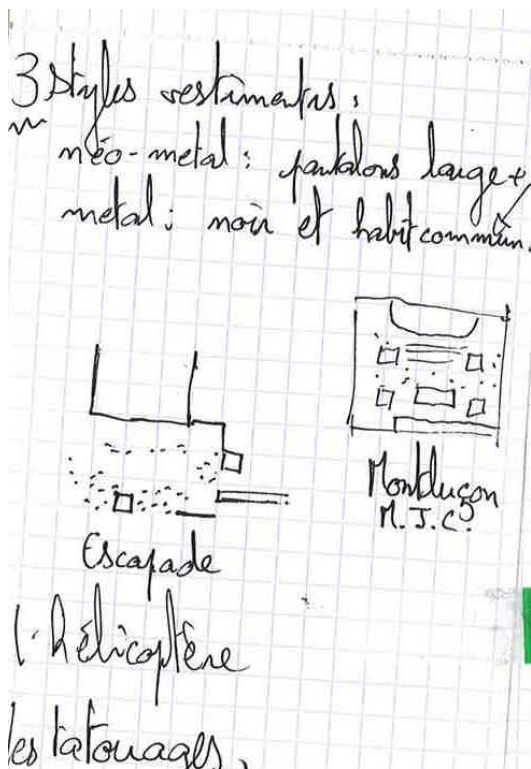 3 Styles vestimentrs.
néo-metal: pantalons large +
metal: noir et habit commun.
Montluçon
M.J.C?
Escapade
l'hélicoptère
les tatouages.